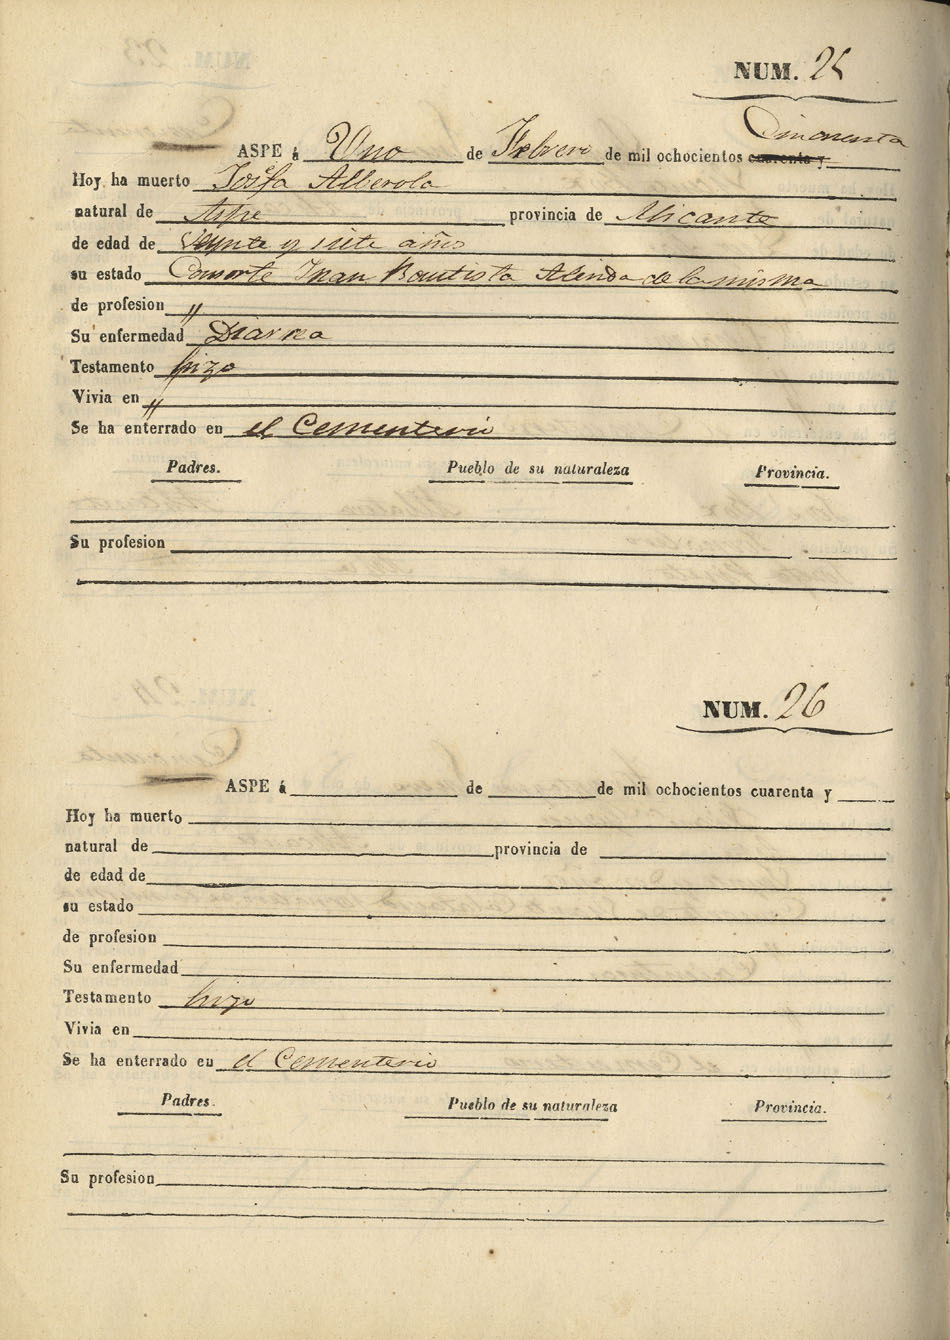 NUM. 25
Cincuenta
ASPE á Uno de Febrero de mil ochocientos cuarenta y
Hoy ha muerto Josefa Alberola
natural de Aspe provincia de Alicante
de edad de Veynte y siete años
su estado Consorte Juan Bautista Alenda de la misma
de profesion "
Su enfermedad Diarrea
Testamento hizo
Vivia en "
Se ha enterrado en el Cementerio
Padres. Pueblo de su naturaleza Provincia.
Su profesion
NUM. 26
ASPE á de de mil ochocientos cuarenta y
Hoy ha muerto
natural de provincia de
de edad de
su estado
de profesion
Su enfermedad
Testamento hizo
Vivia en
Se ha enterrado en el Cementerio
Padres. Pueblo de su naturaleza Provincia.
Su profesion